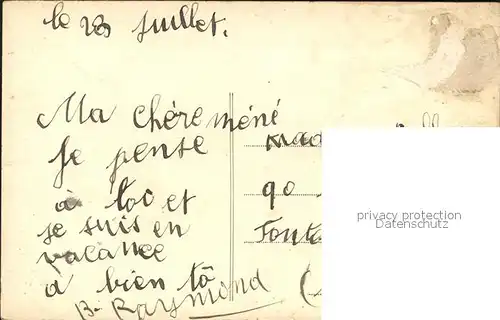 le 28 juillet.
Ma chère méné
Je pense
à toc et
je suis en
vacance
a bien tô
B. Raymond
90
privacy protection
Datenschutz